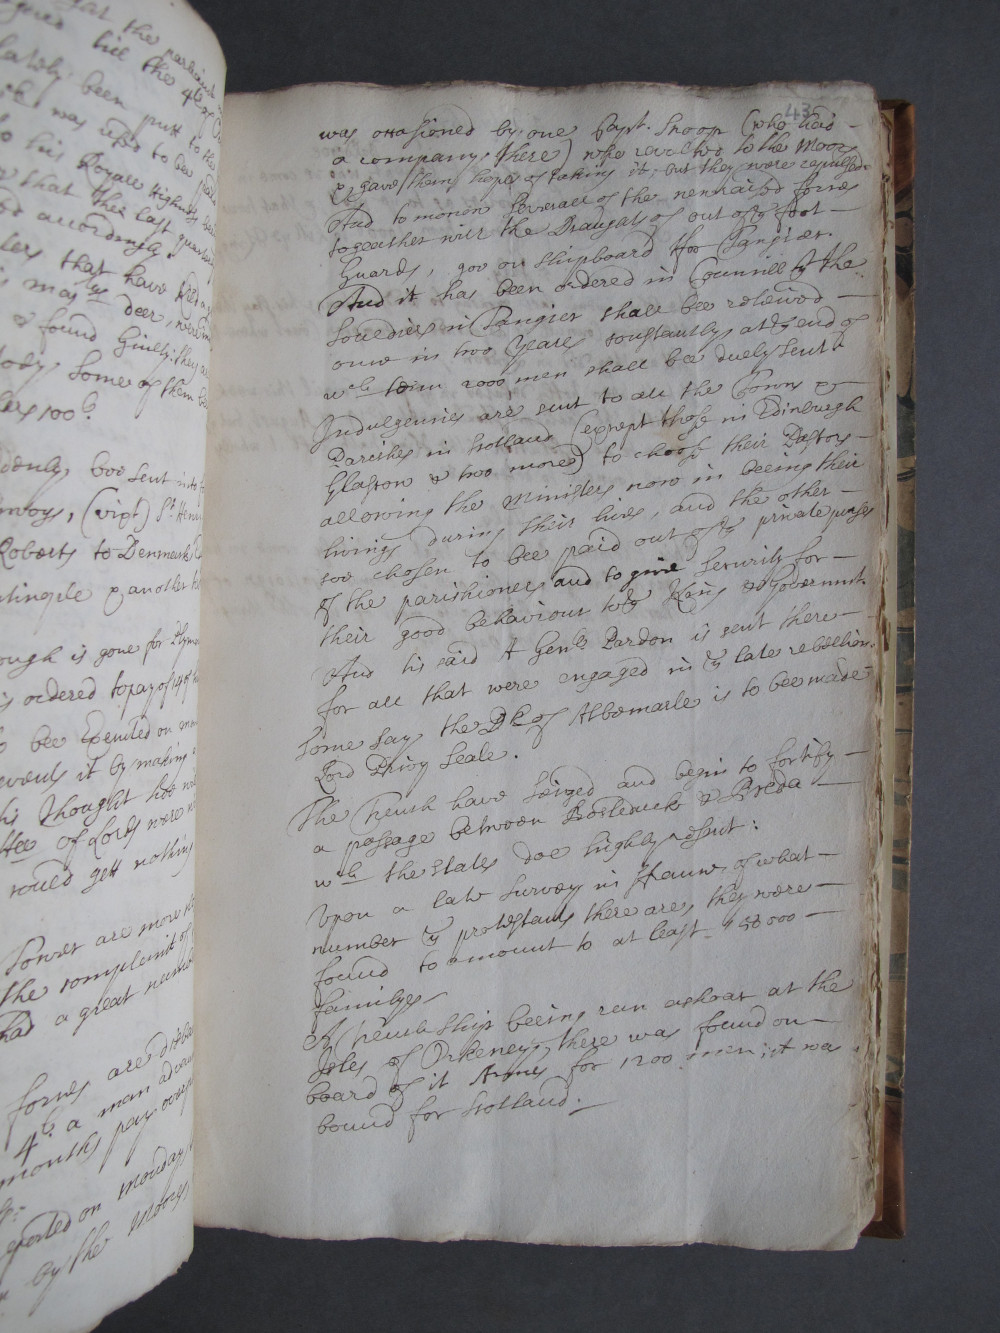 gat the parliamt
till the 4th of
lately been putt to the
it was refs'd to bee
to his Royall Highness
that this last quarter
accordingly.
that have
s ma:ties deer, were
& found Guilty: they
tody some of them bee
100 l.
bee sent into
nvoys, (vizt) Sr Henry
Roberts to Denmark
& another to
ough is gone for Plym
is ordered to pay of
bee Executed on mon
it by making
his thought hee
Hoe of Lords were
would gett nothing
Tower are more
the complaint of
had a great number
forces are disban
4 l. a man advan
months pay over
eported on Monday
by the Moores
43
was occasioned by one Capt. Snoop (who had
a company there) who revolted to the Moors
& gave them hopes of taking it, but they were repulsed
And to morrow severall of the new raised forces
together with the Draughts of out of ye foot
Guards, goe on shipboard for Tangier.
And it has been ordered in Councill yt the
Souldiers in Tangier shall bee releived
once in two Years constantly at ye end of
wch term 2000 men shall be duely sent
Indulgencies are sent to all the Towns &
Parishes in Scotland (except those in Edinburgh
Glascow & two more) to choose their Pastors
allowing the Ministers now in beeing their
livings during their lives, and the other
soe chosen to bee paid out of ye private purses
of the parishioners and to give security for
their good behaviour to ye King & Governmt.
And tis said A Genll Pardon is sent there
for all that were engaged in ye late rebellion.
Some say the Dk of Albemarle is to bee made
Lord Privy Seale.
The French have seized and begin to fortify
a passage between Bosleduck & Breda
wch the States doe highly resent:
Upon a late survey in France of what
number of protestants there are, they were
found to amount to at least 458000
familyes
A French Ship beeing run ashoar at the
Isles of Orkeney, there was found on
board of it Armes for 1200 men; it was
bound for Scotland.